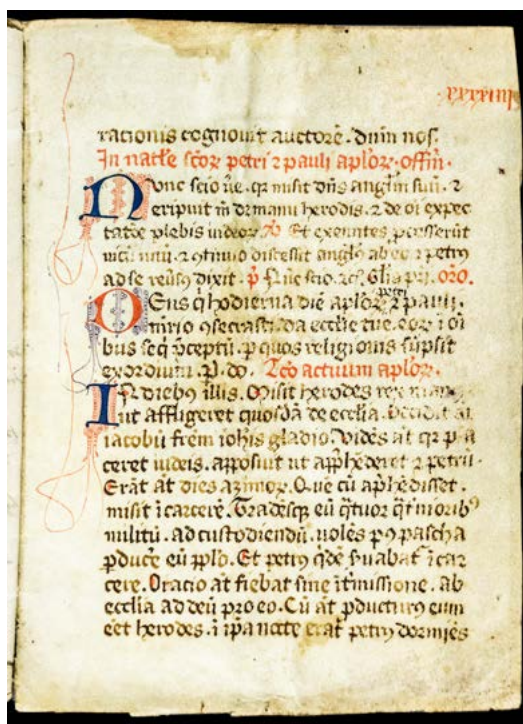 xxxxiiij
racionis cognouit auctorē. dnm nos.
In natłe scōꝝ petri ⁊ pauli aplōꝝ. offm̄.
Nunc scio ūe. qꝛ misit dn̄s angłm suū. ⁊
eripuit m̄ de manu herodis. ⁊ de oī expec
tatōe plebis iudeoꝝ. Et exeuntes ꝓcesserūt
uicū unū. ⁊ ꝯtinuo discessit angłs ab eo. ⁊ petrꝰ
ad se reūsꝰ dixit. p̄ Nūc scio. Glīa pr̄i. orō.
petri
Deus q̇ hodierna diē aplōꝝ ⁊ pauli.
mr̄rio ꝯsecrasti. da ecclīe tue. eoꝝ ī oī
bus seq̇ p̄ceptū. ꝑ quos religionis sūpsit
exordium. P. do. Lc̄o actuum aplōꝝ.
In diebꝰ illis. Misit herodes rex manꝰ
ut affligeret quosdā de ecclīa. Occidit at̄
iacobū frēm ioħis gladio. Vidēs at̄ qꝛ pła
ceret iudeis. apposuit ut app̄hēderet ⁊ petrū.
Erāt at̄ dies azimoꝝ. Quē cū app̄hēdisset.
misit ī carcerē. Tradēsqꝫ eū q̇tuor q̇tnioribꝰ
militū. ad custodiendū. uolēs pꝰ pascha
ꝓducē eū pplō. Et petrꝰ q̇dē ẜuabatˉ ī car
cere. Oracio at̄ fiebat sine īt̄missione. ab
ecclīa ad deū pro eo. Cū at̄ ꝓducturꝰ eum
eēt herodes. ī ip̄a nocte erat petrꝰ dormiēs